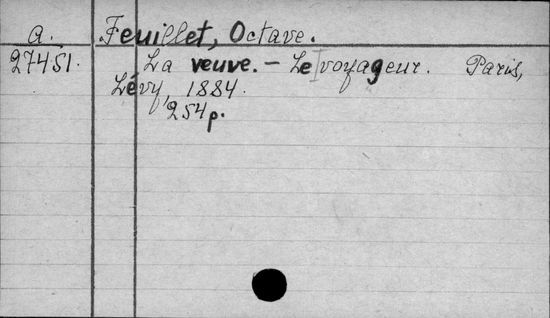 a. Feuillet, Octave.
27451. La veuve. – Le voyageur. Paris,
Lévy, 1884.
254 p.